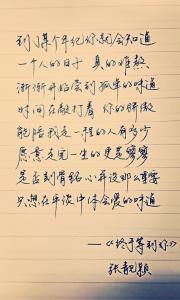 到了某个年纪你就会知道
一个人的日子 真的难熬
渐渐开始尝到孤单的味道
时间在敲打着 你的骄傲
能陪我走一程的人有多少
愿意走完一生的更是寥寥
是否刻骨铭心并没那么重要
只想在平淡中体会爱的味道
——《终于等到你》
张靓颖